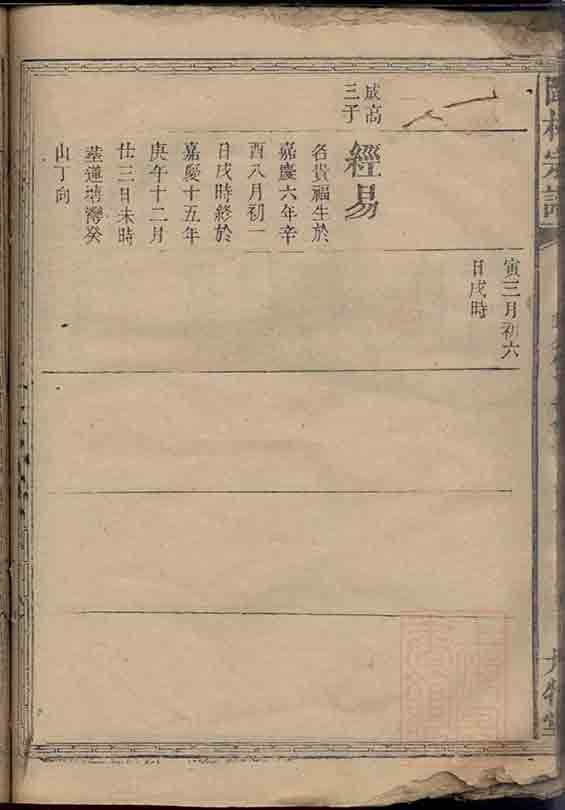 寅三月初六
日戌時
成高
三子
經易
名貴福生於
嘉慶六年辛
酉八月初一
日戌時終於
嘉慶十五年
庚午十二月
廿三日未時
墓蓮塘灣癸
山丁向